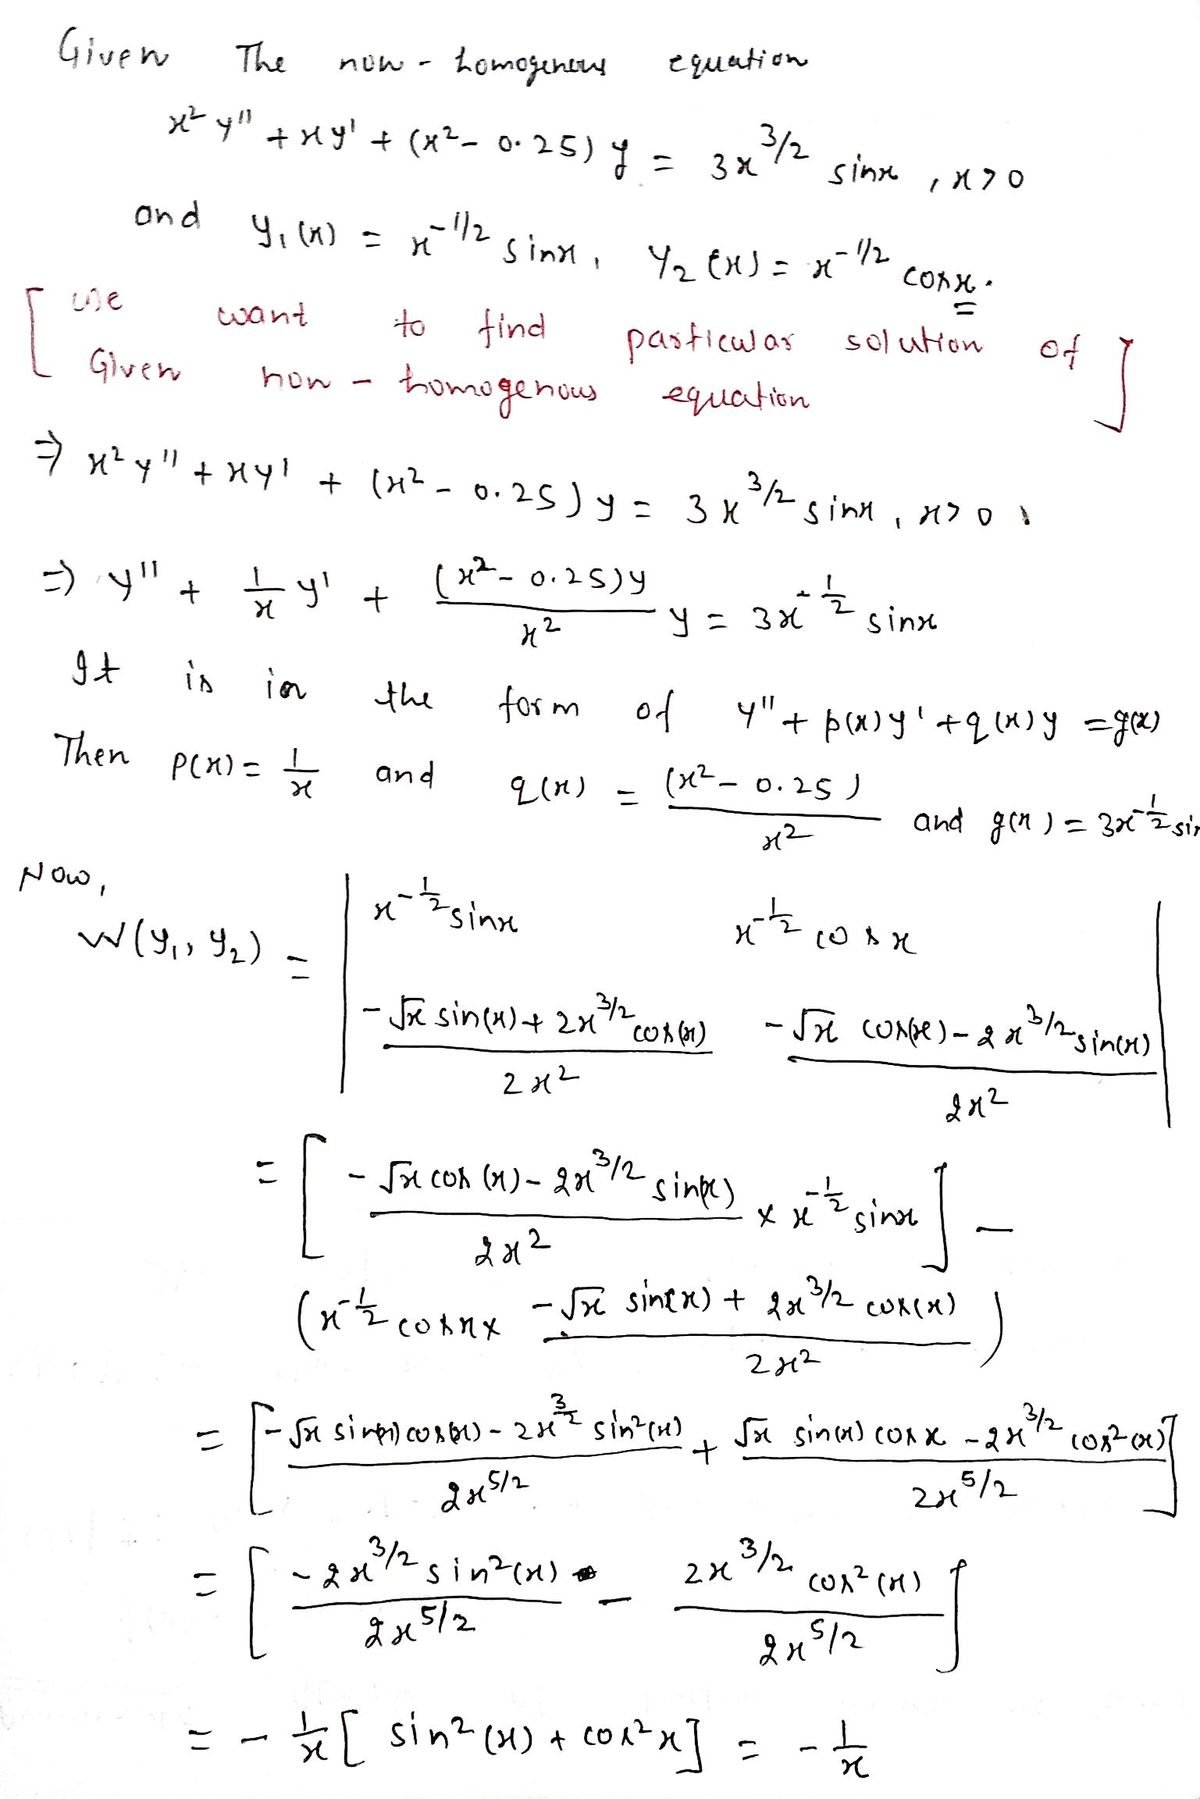 Given The non-homogenous equation
x² y'' + xy' + (x² - 0.25) y = 3x^3/2 sinx, x>0
and y₁(x) = x^-1/2 sinx, y₂(x) = x^-1/2 cosx.
[ we want to find particular solution of
Given non-homogenous equation ]
⇒ x² y'' + xy' + (x² - 0.25) y = 3x^3/2 sinx, x>0
⇒ y'' + 1/x y' + (x² - 0.25)y/x² y = 3x^-1/2 sinx
It is in the form of y'' + p(x)y' + q(x)y = g(x)
Then P(x) = 1/x and q(x) = (x² - 0.25)/x² and g(x) = 3x^-1/2 sin
Now,
W(y₁, y₂) = | x^-1/2 sinx x^-1/2 cosx |
| -√x sin(x) + 2x^3/2 cos(x)/2x² -√x cos(x) - 2x^3/2 sin(x)/2x² |
= [ -√x cos(x) - 2x^3/2 sin(x)/2x² × x^-1/2 sinx ] -
(x^-1/2 cosx × -√x sin(x) + 2x^3/2 cos(x)/2x²)
= [ -√x sin(x) cos(x) - 2x^3/2 sin²(x)/2x^5/2 + √x sin(x) cosx - 2x^3/2 cos²(x)/2x^5/2 ]
= [ -2x^3/2 sin²(x)/2x^5/2 - 2x^3/2 cos²(x)/2x^5/2 ]
= -1/x [ sin²(x) + cos²x ] = -1/x